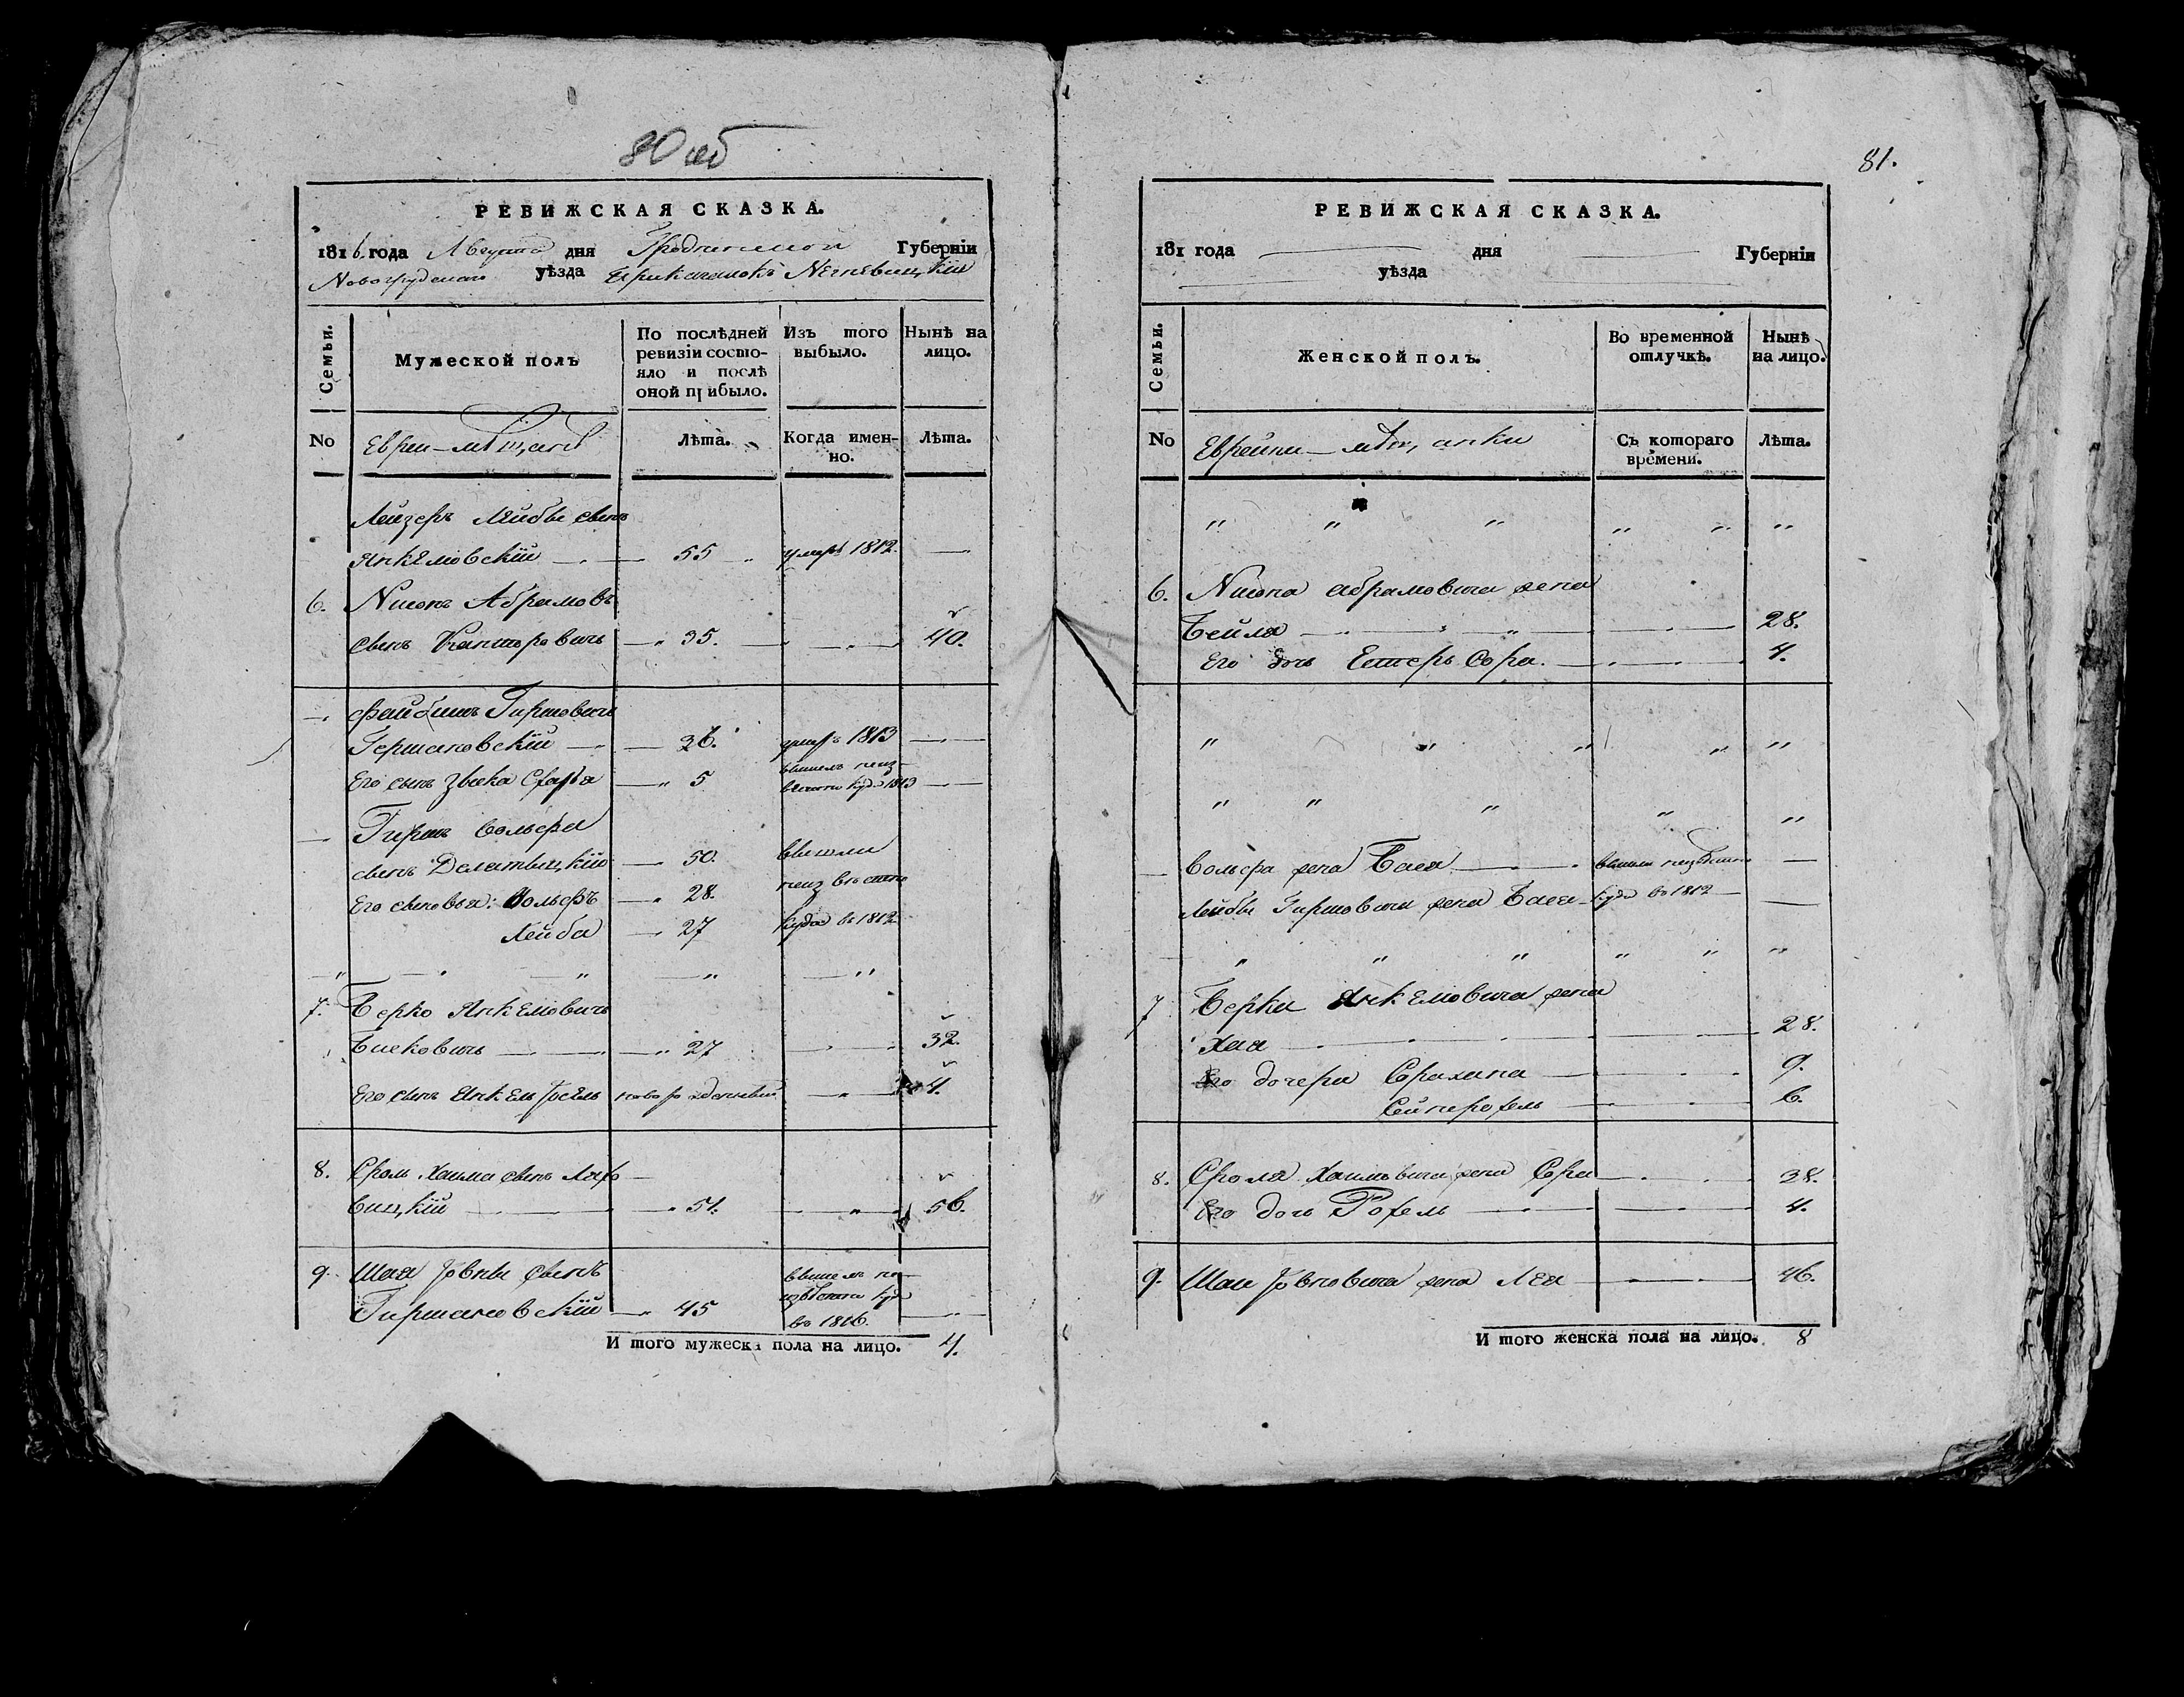 80 об
РЕВИЖСКАЯ СКАЗКА.
1816 года Августа дня Гродненской Губерніи
Новогрудскаго уѣзда Прикагалокъ Негневицкій
Семьи.
Мужеской полъ
По послѣдней ревизіи состояло и послѣ оной прибыло.
Изъ того выбыло.
Нынѣ на лицо.
No
Евреи - мѣщане
Лѣта.
Когда именно.
Лѣта.
Лейзеръ Лейбы сынъ
Янкелювскій 55 умеръ 1812.
6. Нисонъ Абрамовъ
сынъ Канторовичь 35. 40.
Файбишъ Гиршовичь
Гершановскій 36. умеръ 1813
Его сынъ 5 вышелъ неизвѣстно куда 1813
Гиршъ Вольфа
сынъ Делятыцкій 50. вышли
Его сыновья: Вольфъ 28. неизвѣстно
Лейба 27 куда въ 1812
7. Берко Янкелювичь
Бисковичь 27 32.
Его сынъ Янкель Іосель новорожденный 4.
8. Сроль Хаима сынъ
вицкій 51. 56.
9. Шая Іовны сынъ вышелъ не
извѣстно куда
Гиршановскій 45 въ 1816.
И того мужеска пола на лицо. 4.
81.
РЕВИЖСКАЯ СКАЗКА.
181 года дня Губерніи
уѣзда
Семьи.
Женской полъ.
Во временной отлучкѣ.
Нынѣ на лицо.
No
Еврейки - мѣщанки
Съ котораго времени.
Лѣта.
6. Нисона Абрамовича жена
Бейля 28.
Его дочь Естеръ Сора. 4.
Вольфа жена Бася вышли неизвѣстно
Лейбы Гиршовича жена Бася куда въ 1812
7 Берки Янкелювича жена
Хая 28.
Его дочери Сорахана 9.
6.
8. Сроля Хаимовича жена Сора 38.
Его дочь Рохель 4.
9. Шаи Іовновича жена Лея 46.
И того женска пола на лицо. 8